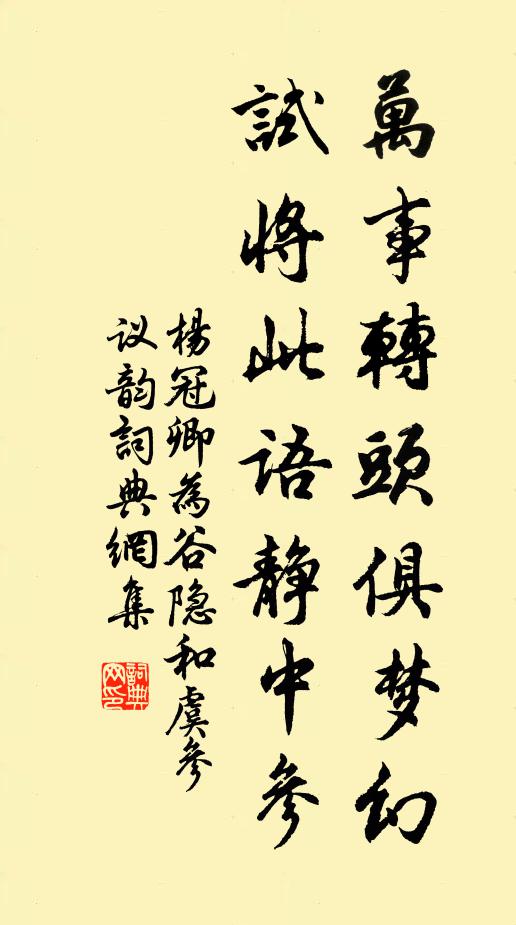 萬事轉頭俱梦幻
試将此语静中參
楊冠卿為谷隐和虞參
议韵詞典網集
詞典网印